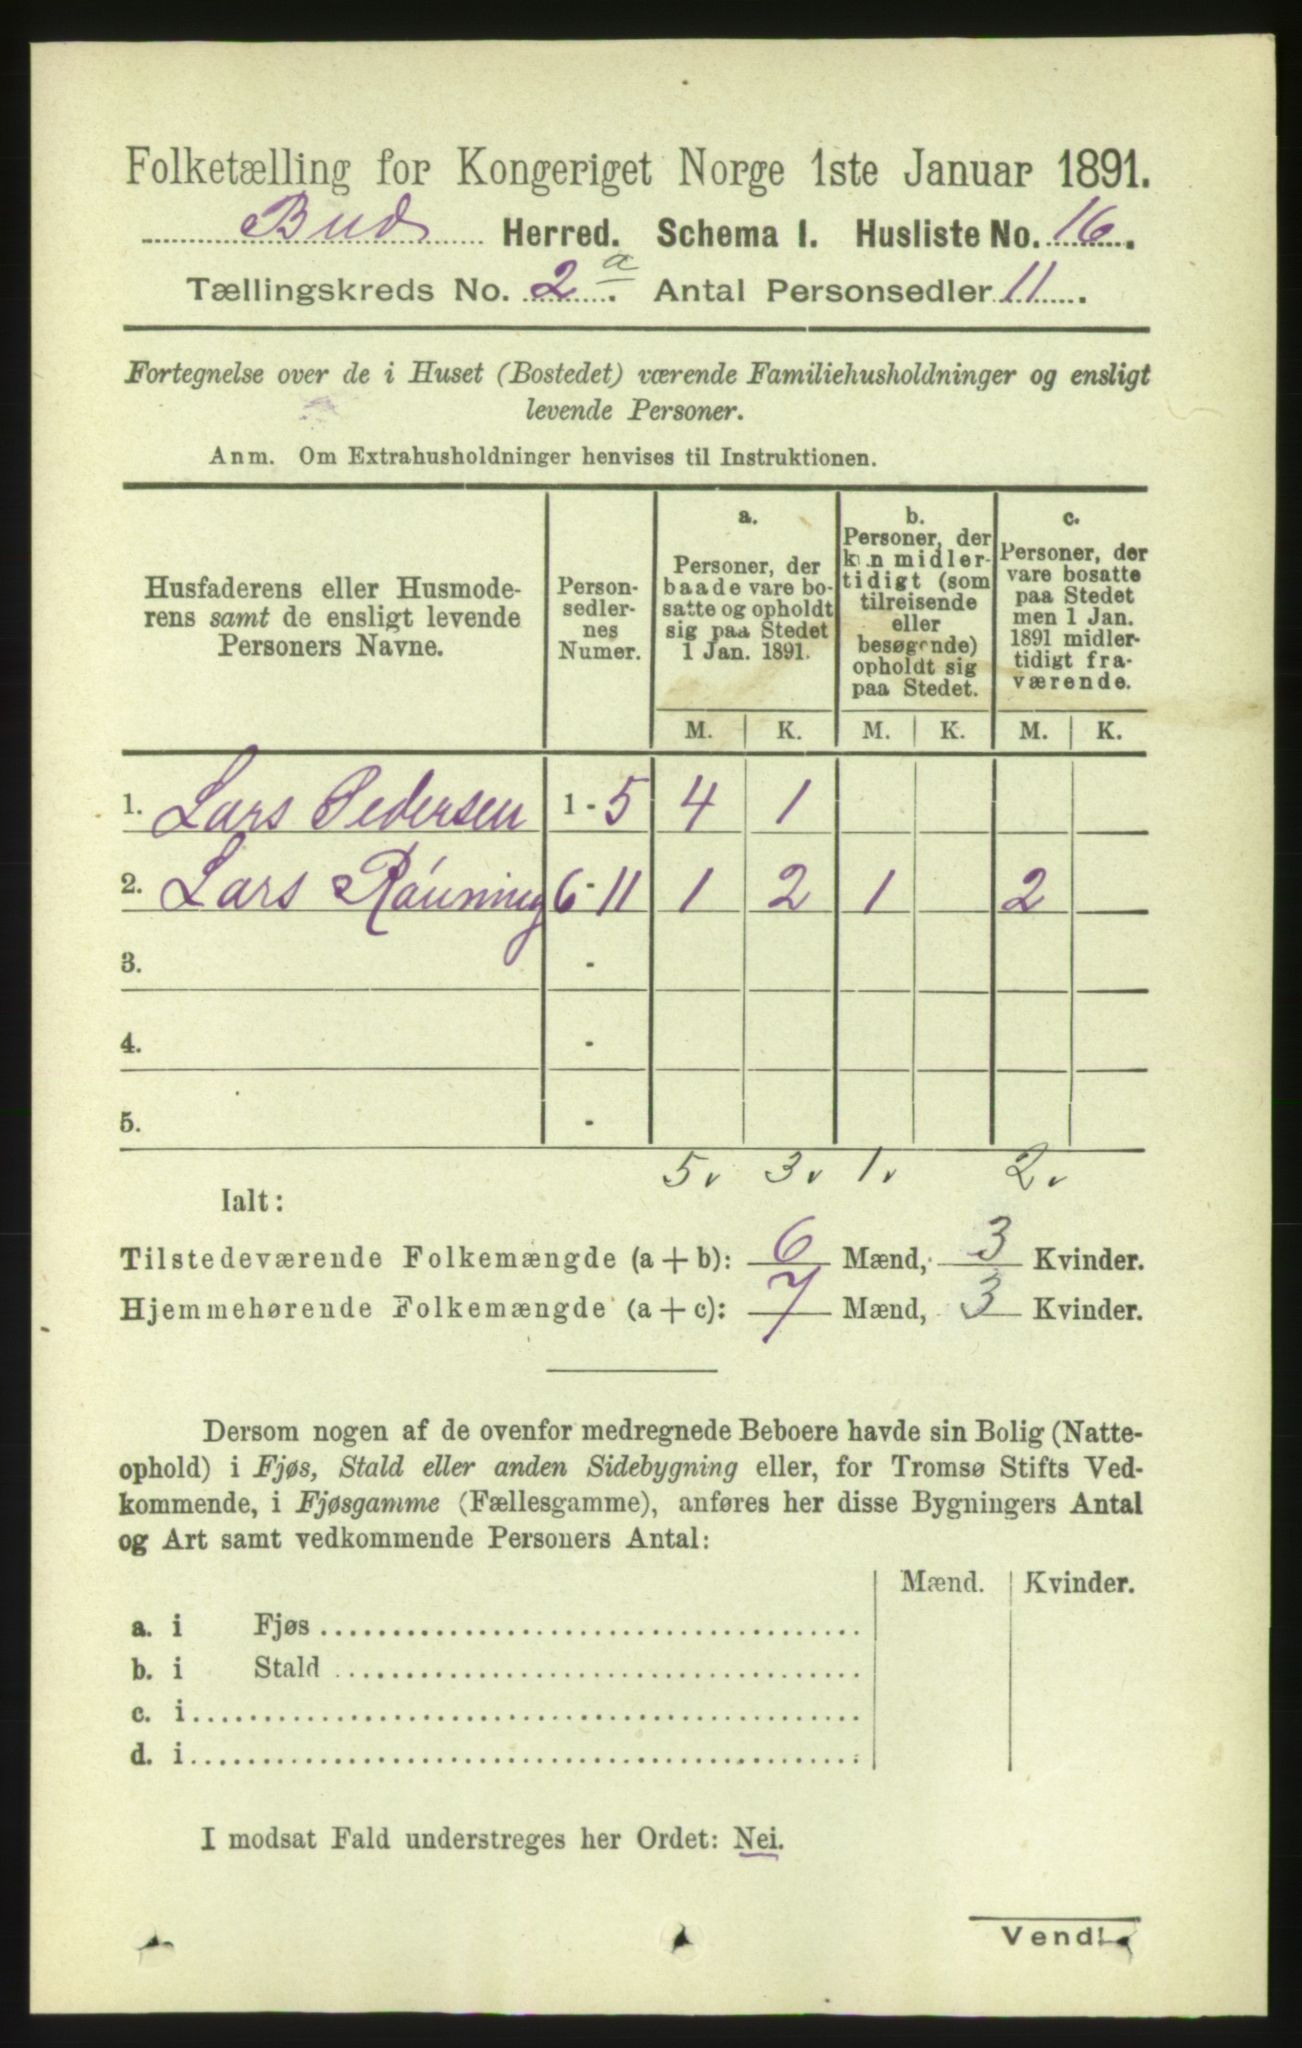 Folketælling for Kongeriget Norge 1ste Januar 1891.
Bud Herred. Schema I. Husliste No. 16.
Tællingskreds No. 2a. Antal Personsedler 11.
Fortegnelse over de i Huset (Bostedet) værende Familiehusholdninger og ensligt
levende Personer.
Anm. Om Extrahusholdninger henvises til Instruktionen.
Husfaderens eller Husmode-
rens samt de ensligt levende
Personers Navne.
Person-
sedler-
nes
Numer.
a.
Personer, der
baade vare bo-
satte og opholdt
sig paa Stedet
1 Jan. 1891.
b.
Personer, der
kun midler-
tidigt (som
tilreisende
eller
besøgende)
opholdt sig
paa Stedet.
c.
Personer, der
vare bosatte
paa Stedet
men 1 Jan.
1891 midler-
tidigt fra-
værende.
M. K. M. K. M. K.
1. Lars Pedersen 1-5 4 1
2. Lars Rönning 6-11 1 2 1 2
3. -
4. -
5. -
5v 3v 1v 2v
Ialt:
Tilstedeværende Folkemængde (a + b): 6 Mænd, 3 Kvinder.
Hjemmehørende Folkemængde (a + c): 7 Mænd, 3 Kvinder.
Dersom nogen af de ovenfor medregnede Beboere havde sin Bolig (Natte-
ophold) i Fjøs, Stald eller anden Sidebygning eller, for Tromsø Stifts Ved-
kommende, i Fjøsgamme (Fællesgamme), anføres her disse Bygningers Antal
og Art samt vedkommende Personers Antal:
Mænd. Kvinder.
a. i Fjøs
b. i Stald
c. i
d. i
I modsat Fald understreges her Ordet: Nei.
Vend!